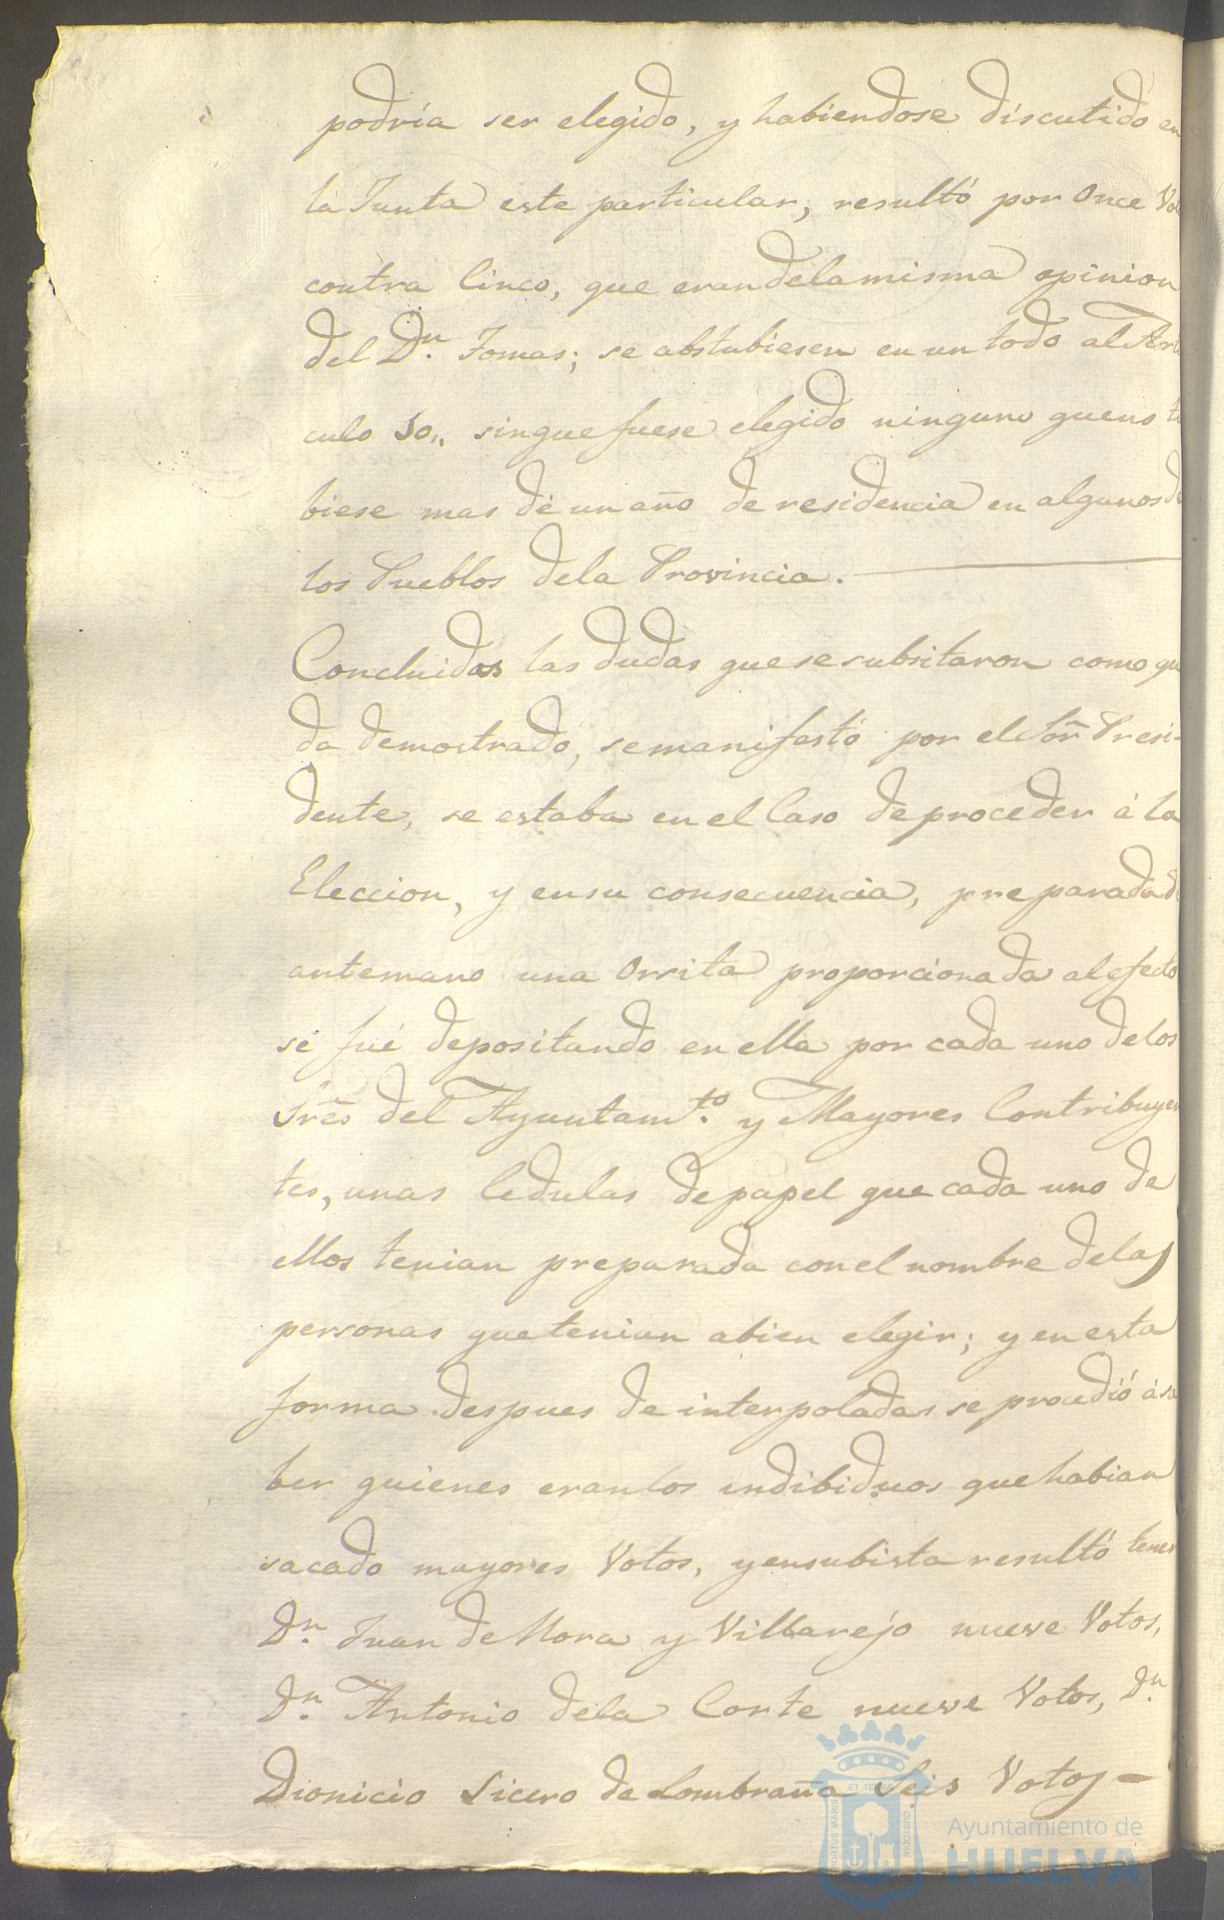 podría ser elegido, y habiendose discutido en
la Junta este particular, resultó por Once Vo
contra Cinco, que eran dela misma opinion
del Dn. Tomas; se abstubiesen en un todo al Arti
culo 50,, sin que fuese elegido ninguno que no tu
biese mas de un año de residencia en algunos de
los Pueblos dela Provincia.
Concluidas las dudas que se subsitaron como que
da demostrado, se manifastó por el Sor. Presi-
dente, se estaba en el Caso de proceder á la
Eleccion, y en su consecuencia, preparada de
antemano una Orsita proporcionada al efecto
se fué depositando en ella por cada uno de los
Sres del Ayuntamto. y Mayores Contribuyen
tes, unas Cedulas de papel que cada uno de
ellos tenian preparada con el nombre delas
personas que tenian abien elegir; y en esta
forma despues de interpoladas se procedió á sa
ber quienes eran los indibiduos que habian
sacado mayores Votos, y en su bista resultó tener
Dn. Juan de Mora y Villarejo nueve Votos,
Dn. Antonio dela Corte nueve Votos, Dn.
Dionicio Sicero de Lombraña Seis Votos -
PORTUS MARIS ET TERRAE CUSTODIA
Ayuntamiento de
HUELVA